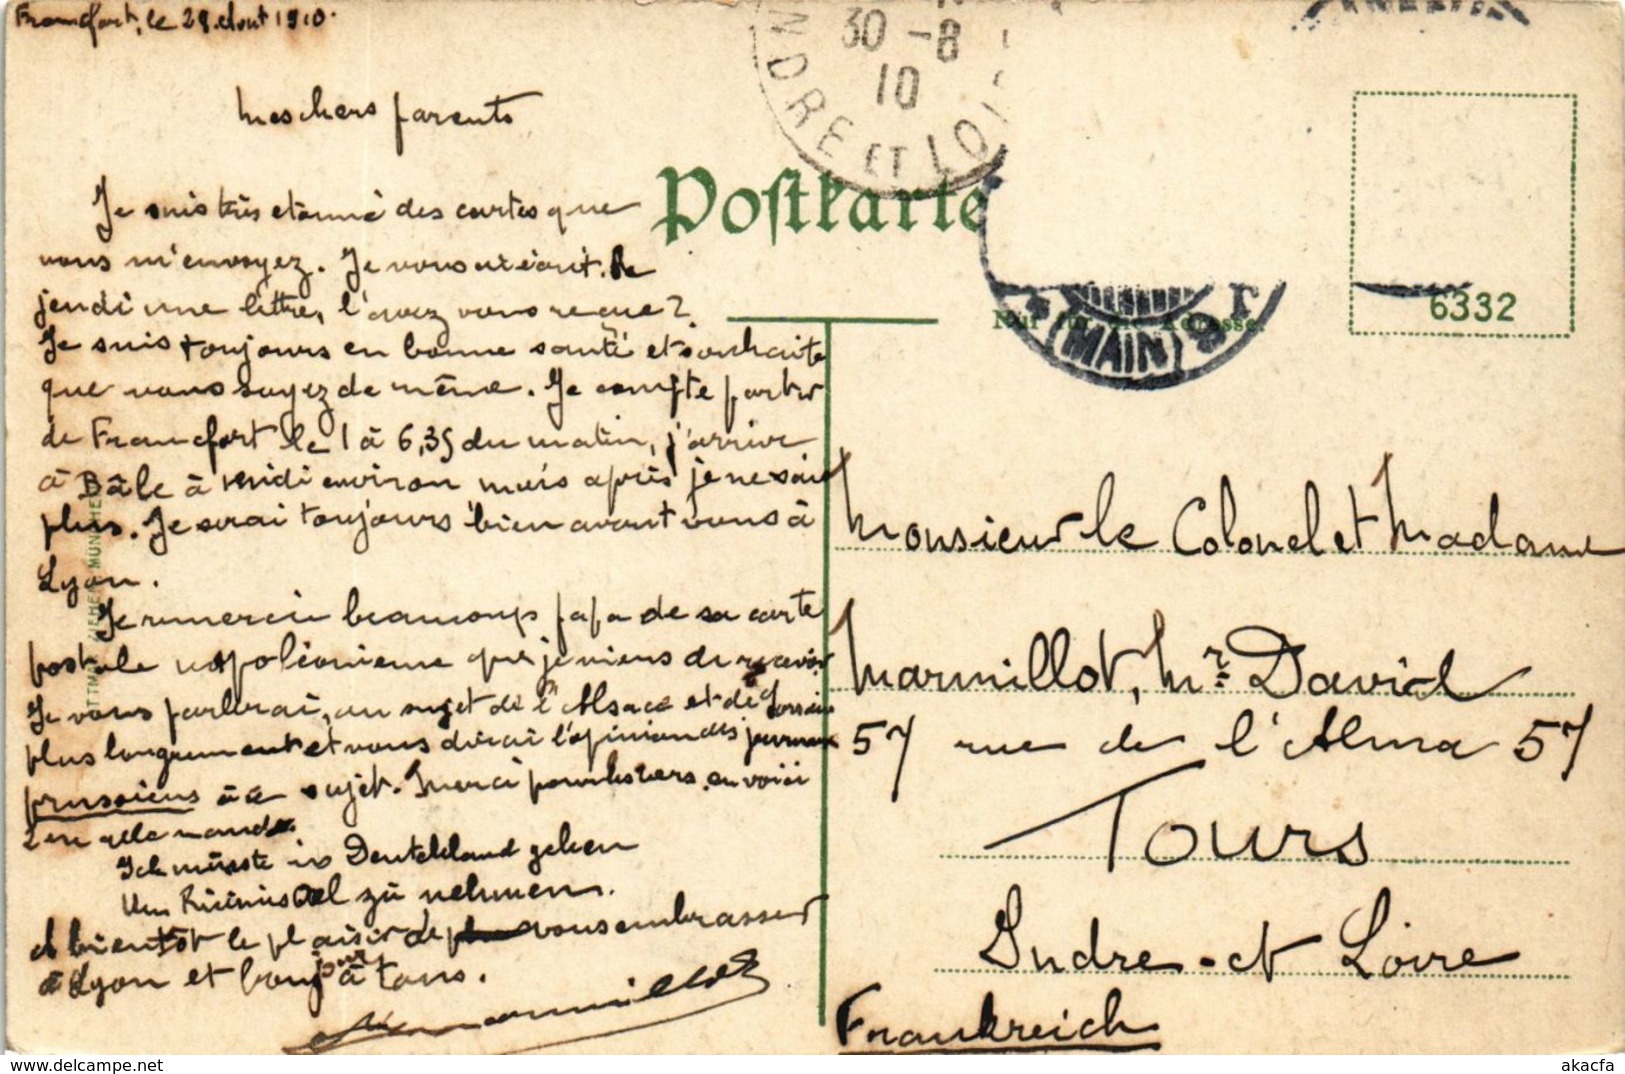 Francfort, le 29 Aout 1910.
Mes chers parents
Je suis très etonné des cartes que
vous m'envoyez. Je vous ai écrit le
jeudi une lettre, l'avez vous reçue ?
Je suis toujours en bonne santé et souhaite
que vous soyez de même. Je compte partir
de Francfort le 1 à 6,35 du matin, j'arrive
à Bâle à midi environ mais après je ne sais
plus. Je serai toujours bien avant vous à
Lyon.
Je remercie beaucoup papa de sa carte
postale napoléonienne que je viens de recevoir
Je vous parlerai, au sujet de l'Alsace et de Lorraine
plus longuement et vous dirai l'opinion des journaux
prussiens à ce sujet. Merci pour les vers, en voici
2 en allemand.
Ich müsste in Deutchland gehen
Um RicinusOel zu nehmen.
A bientôt le plaisir de vous embrasser
à Lyon et bonjour à tous.
Marmillot
Postkarte
Nur für die Adresse.
6332
30 -8
10
INDRE ET LOIRE
(MAIN) 9
Monsieur le Colonel et Madame
Marmillot, Mr David
57 rue de l'Alma 57
Tours
Indre-et Loire
Frankreich
akacfa